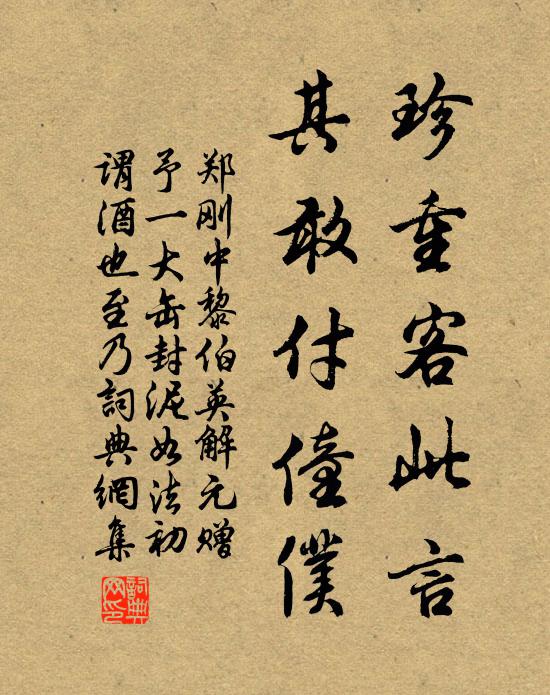 珍重客此言
其敢付僮僕
郑刚中黎伯英解元赠
予一大缶封泥如法初
谓酒也至乃詞典網集
詞典网印